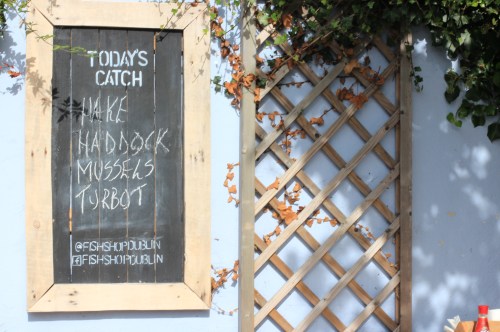 TODAY'S
CATCH
HAKE
HADDOCK
MUSSELS
TURBOT
@FISHSHOPDUBLIN
@FISHSHOPDUBLIN